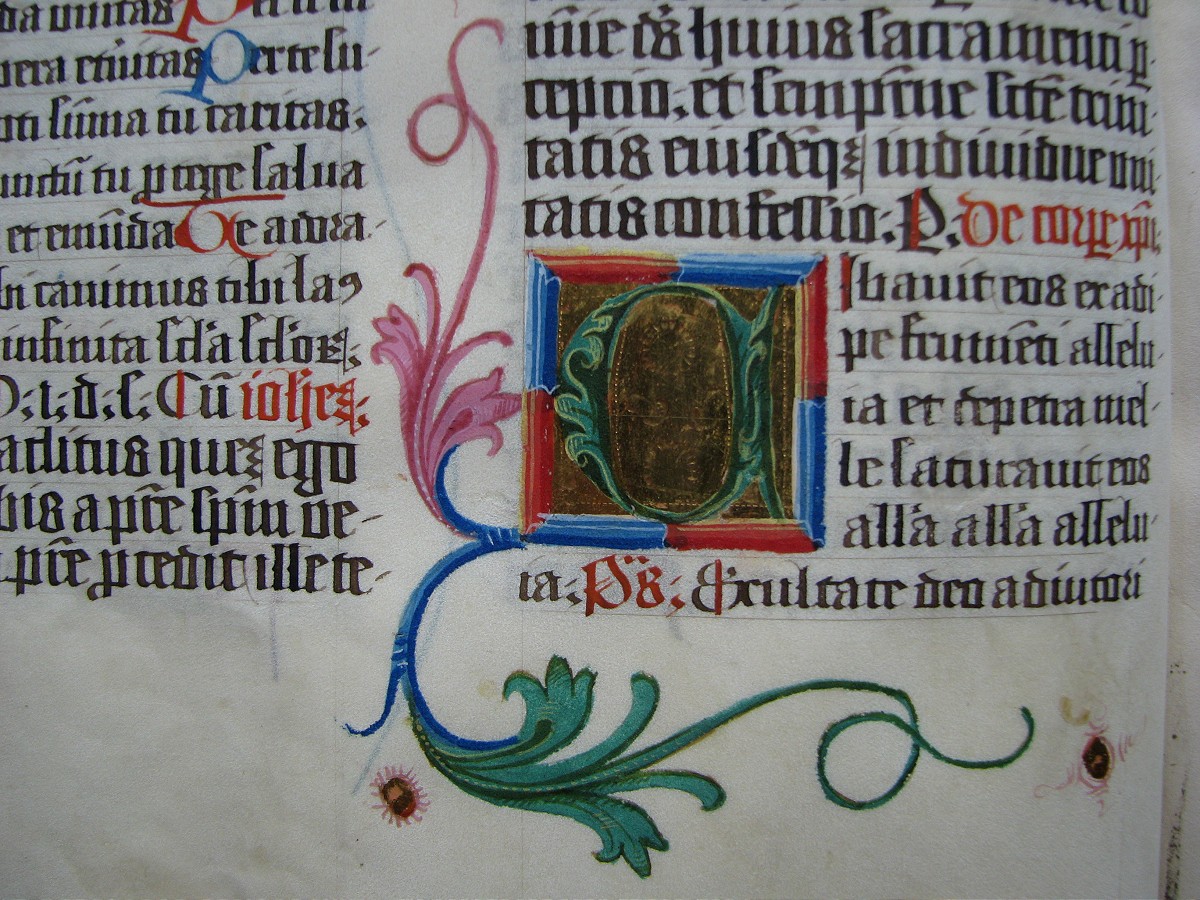 da unitas P
vera et unitas Per te su-
oti sũma tu caritas:
unctũ tu ptege salua
et emũda Te adora-
bi canimus tibi laꝯ
infinita scła scłoꝝ:
D: i: d: s: Cũ iohes:
aditus que ego
bis a pr̃e spm̃ ve-
a pr̃e pcedit ille te-
ds̃ huius sacramenti p-
ceptio: et sempit'ne scẽ trini-
tatis eiusdẽqꝫ indiuidue uni-
tatis confessio: P: De corpe xp̃i:
C Ibauit eos ex adi-
pe frumẽti allelu-
ia et de petra mel-
le saturauit eos
all'a all'a allelu-
ia: P̃s: Exultate deo adiutori